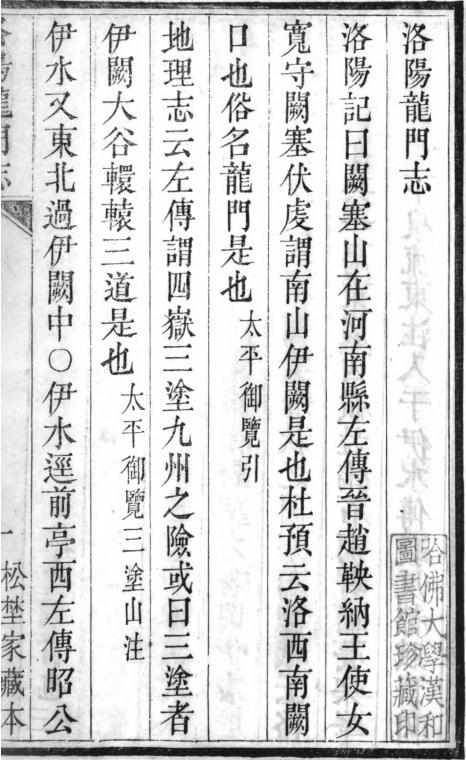 洛陽龍門志
洛陽記曰闕塞山在河南縣左傳晉趙鞅納王使女
寬守闕塞伏虔謂南山伊闕是也杜預云洛西南闕
口也俗名龍門是也 太平御覽引
地理志云左傳謂四嶽三塗九州之險或曰三塗者
伊闕大谷轘轅三道是也 太平御覽三塗山注
伊水又東北過伊闕中○伊水逕前亭西左傳昭公
洛陽龍門志
一 松埜家藏本
哈佛大學漢和
圖書館珍藏印